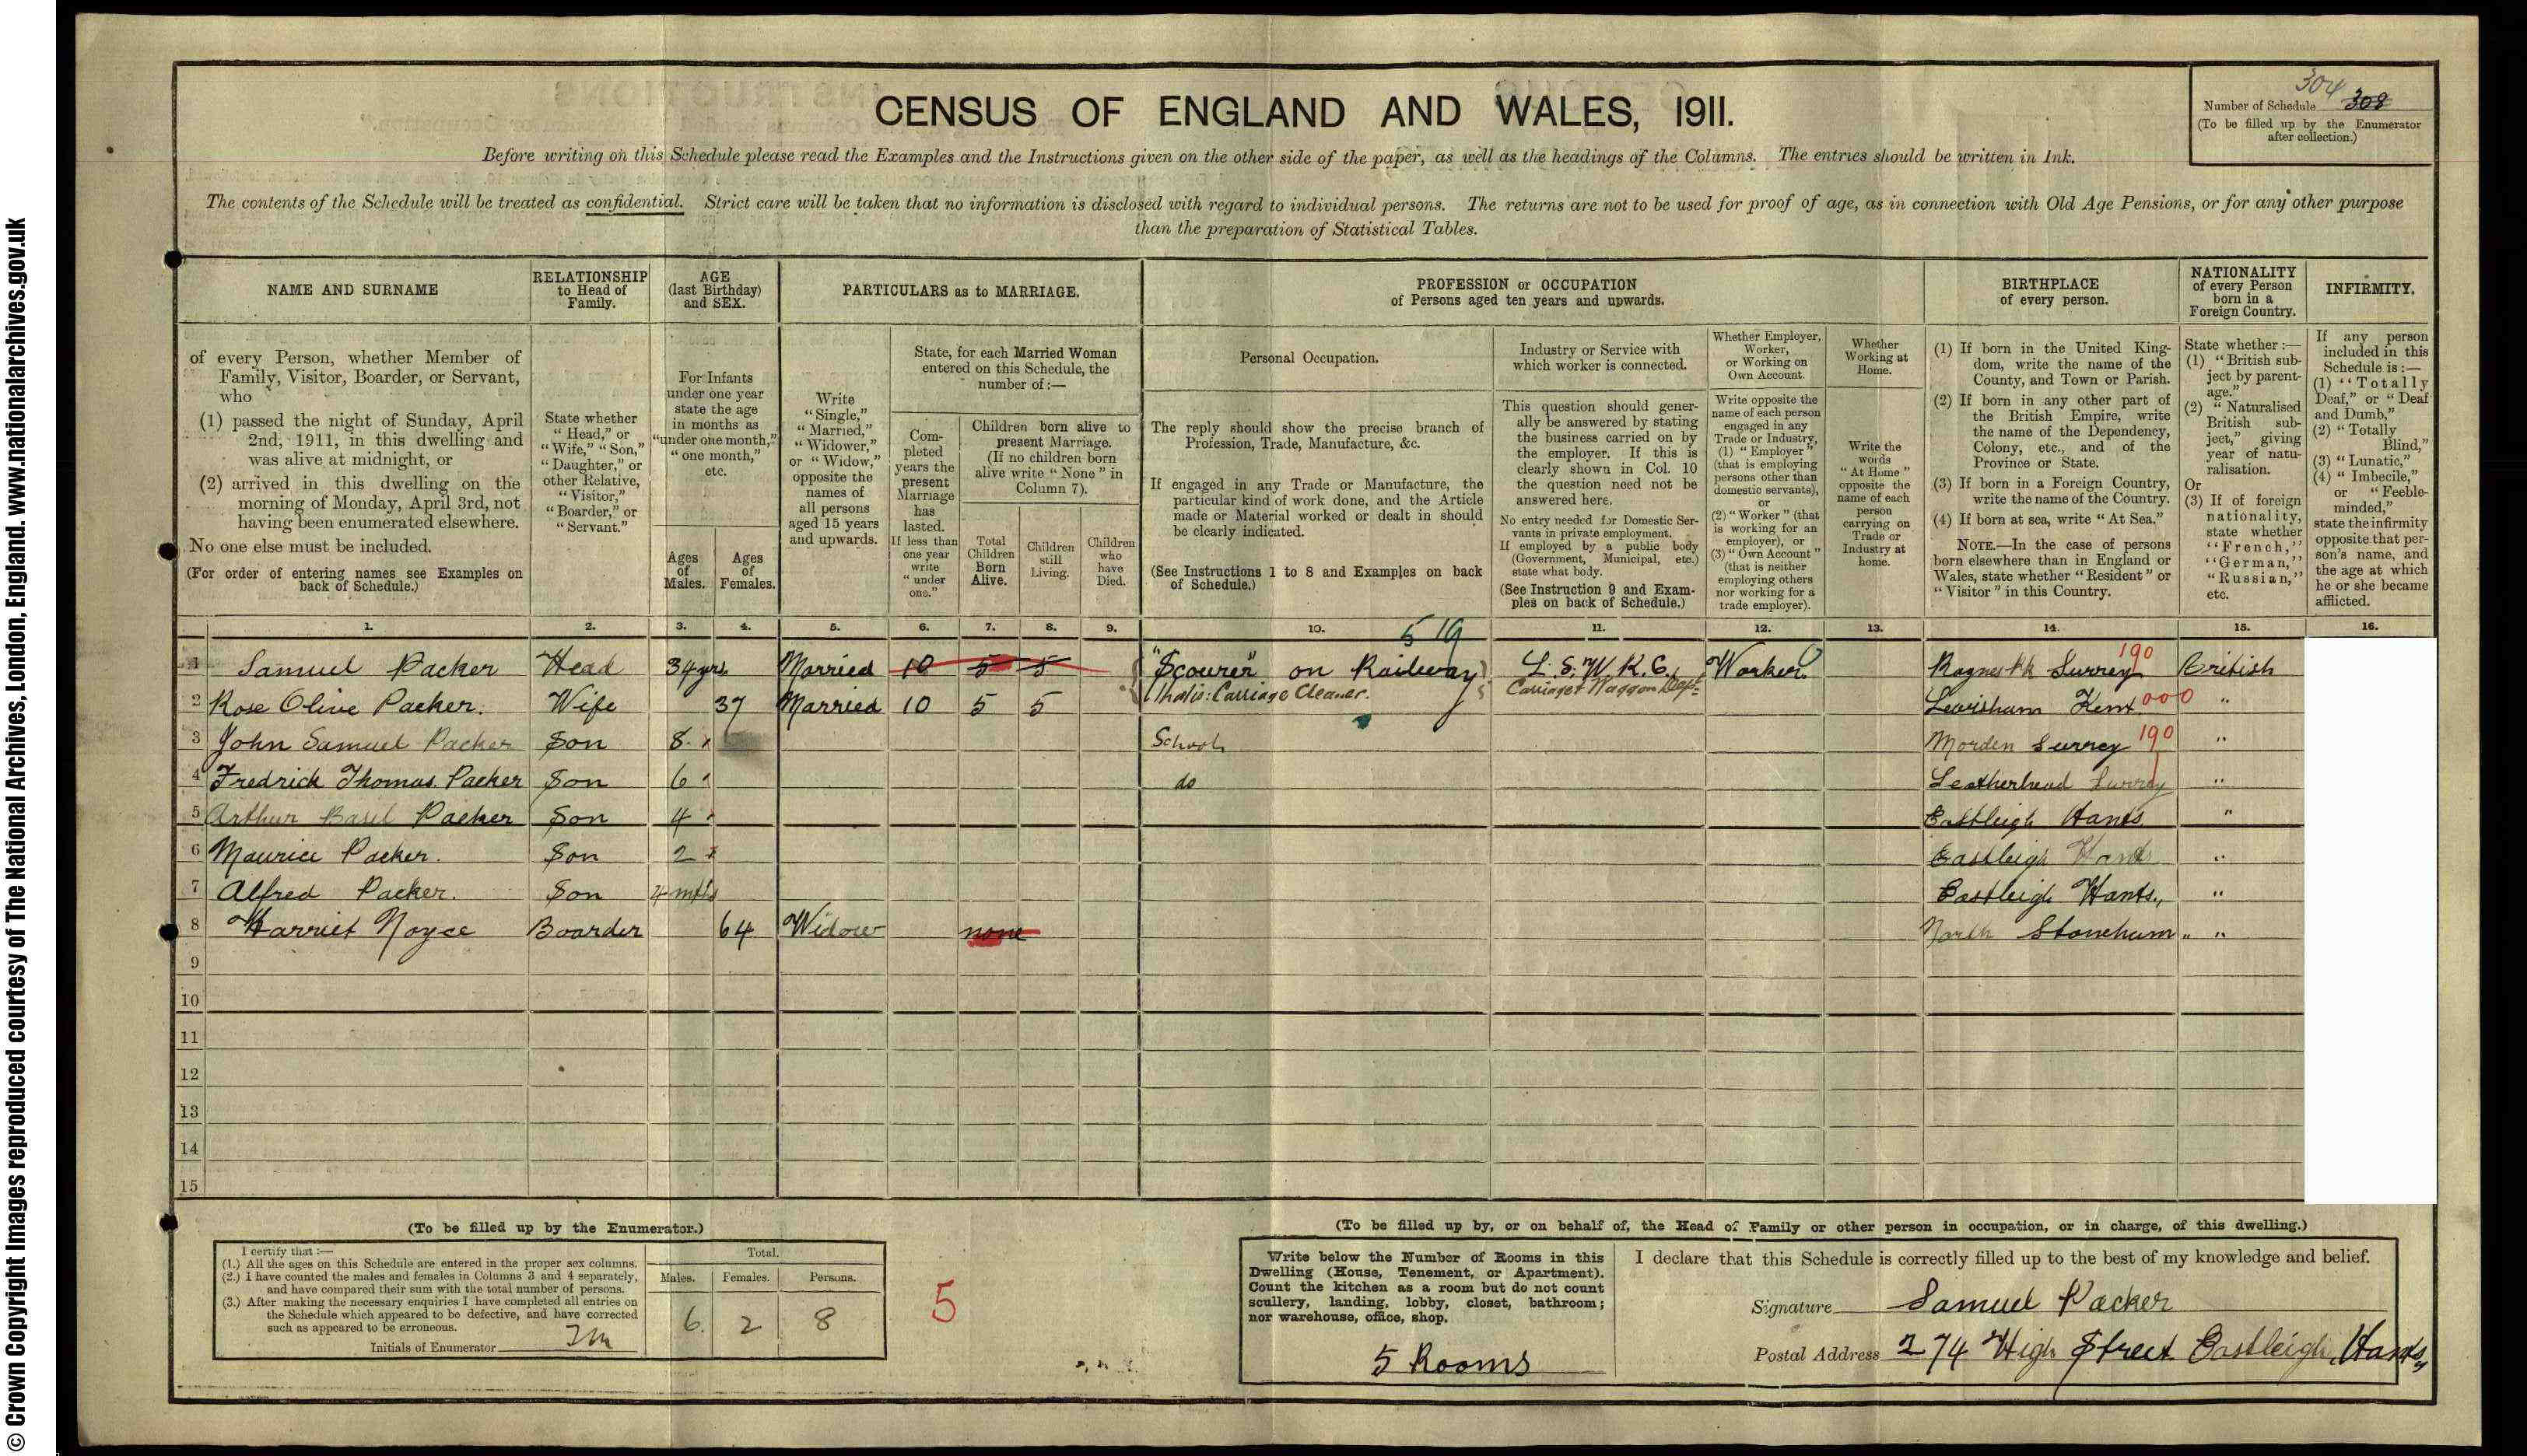 © Crown Copyright Images reproduced courtesy of The National Archives, London, England. www.nationalarchives.gov.uk
304
Number of Schedule 308
(To be filled up by the Enumerator
after collection.)
CENSUS OF ENGLAND AND WALES, 1911.
Before writing on this Schedule please read the Examples and the Instructions given on the other side of the paper, as well as the headings of the Columns. The entries should be written in Ink.
The contents of the Schedule will be treated as confidential. Strict care will be taken that no information is disclosed with regard to individual persons. The returns are not to be used for proof of age, as in connection with Old Age Pensions, or for any other purpose
than the preparation of Statistical Tables.
NAME AND SURNAME
of every Person, whether Member of
Family, Visitor, Boarder, or Servant,
who
(1) passed the night of Sunday, April
2nd, 1911, in this dwelling and
was alive at midnight, or
(2) arrived in this dwelling on the
morning of Monday, April 3rd, not
having been enumerated elsewhere.
No one else must be included.
(For order of entering names see Examples on
back of Schedule.)
RELATIONSHIP
to Head of
Family.
State whether
"Head," or
"Wife," "Son,"
"Daughter," or
other Relative,
"Visitor,"
"Boarder," or
"Servant."
AGE
(last Birthday)
and SEX.
For Infants
under one year
state the age
in months as
"under one month,"
"one month,"
etc.
Ages
of
Males.
Ages
of
Females.
PARTICULARS as to MARRIAGE.
Write
"Single,"
"Married,"
"Widower,"
or "Widow,"
opposite the
names of
all persons
aged 15 years
and upwards.
State, for each Married Woman
entered on this Schedule, the
number of:—
Com-
pleted
years the
present
Marriage
has
lasted.
If less than
one year
write
"under
one."
Children born alive to
present Marriage.
(If no children born
alive write "None" in
Column 7).
Total
Children
Born
Alive.
Children
still
Living.
Children
who
have
Died.
PROFESSION or OCCUPATION
of Persons aged ten years and upwards.
Personal Occupation.
The reply should show the precise branch of
Profession, Trade, Manufacture, &c.
If engaged in any Trade or Manufacture, the
particular kind of work done, and the Article
made or Material worked or dealt in should
be clearly indicated.
(See Instructions 1 to 8 and Examples on back
of Schedule.)
Industry or Service with
which worker is connected.
This question should gener-
ally be answered by stating
the business carried on by
the employer. If this is
clearly shown in Col. 10
the question need not be
answered here.
No entry needed for Domestic Ser-
vants in private employment.
If employed by a public body
(Government, Municipal, etc.)
state what body.
(See Instruction 9 and Exam-
ples on back of Schedule.)
Whether Employer,
Worker,
or Working on
Own Account.
Write opposite the
name of each person
engaged in any
Trade or Industry,
(1) "Employer"
(that is employing
persons other than
domestic servants),
or
(2) "Worker" (that
is working for an
employer), or
(3) "Own Account"
(that is neither
employing others
nor working for a
trade employer).
Whether
Working at
Home.
Write the
words
"At Home"
opposite the
name of each
person
carrying on
Trade or
Industry at
home.
BIRTHPLACE
of every person.
(1) If born in the United King-
dom, write the name of the
County, and Town or Parish.
(2) If born in any other part of
the British Empire, write
the name of the Dependency,
Colony, etc., and of the
Province or State.
(3) If born in a Foreign Country,
write the name of the Country.
(4) If born at sea, write "At Sea."
NOTE.—In the case of persons
born elsewhere than in England or
Wales, state whether "Resident" or
"Visitor" in this Country.
NATIONALITY
of every Person
born in a
Foreign Country.
State whether:—
(1) "British sub-
ject by parent-
age."
(2) "Naturalised
British sub-
ject," giving
year of natu-
ralisation.
Or
(3) If of foreign
nationality,
state whether
"French,"
"German,"
"Russian,"
etc.
INFIRMITY.
If any person
included in this
Schedule is:—
(1) "Totally
Deaf," or "Deaf
and Dumb,"
(2) "Totally
Blind,"
(3) "Lunatic,"
(4) "Imbecile,"
or "Feeble-
minded,"
state the infirmity
opposite that per-
son's name, and
the age at which
he or she became
afflicted.
1. 2. 3. 4. 5. 6. 7. 8. 9. 10. 11. 12. 13. 14. 15. 16.
519
1 Samuel Packer Head 34 yrs Married 10 5 5 "Scourer" on Railway L. S. W. R. C. Worker Surrey 190 British
(that is: Carriage Cleaner. Carriage & Waggon Dept.
2 Rose Olive Packer. Wife 37 Married 10 5 5 Lewisham Kent 000 "
3 John Samuel Packer Son 8 School Morden Surrey 190 "
4 Fredrick Thomas Packer Son 6 do Leatherhead Surrey "
5 Arthur Basil Packer Son 4 Eastleigh Hants "
6 Maurice Packer. Son 2 Eastleigh Hants "
7 Alfred Packer. Son 4 mths Eastleigh Hants., "
8 Harriet Noyce Boarder 64 Widow none North Stoneham " "
9
10
11
12
13
14
15
(To be filled up by the Enumerator.)
I certify that:—
(1.) All the ages on this Schedule are entered in the proper sex columns.
(2.) I have counted the males and females in Columns 3 and 4 separately,
and have compared their sum with the total number of persons.
(3.) After making the necessary enquiries I have completed all entries on
the Schedule which appeared to be defective, and have corrected
such as appeared to be erroneous.
Initials of Enumerator
Total.
Males. Females. Persons.
6. 2 8
5
(To be filled up by, or on behalf of, the Head of Family or other person in occupation, or in charge, of this dwelling.)
Write below the Number of Rooms in this
Dwelling (House, Tenement, or Apartment).
Count the kitchen as a room but do not count
scullery, landing, lobby, closet, bathroom;
nor warehouse, office, shop.
5 Rooms
I declare that this Schedule is correctly filled up to the best of my knowledge and belief.
Signature Samuel Packer
Postal Address 274 High Street Eastleigh, Hants,